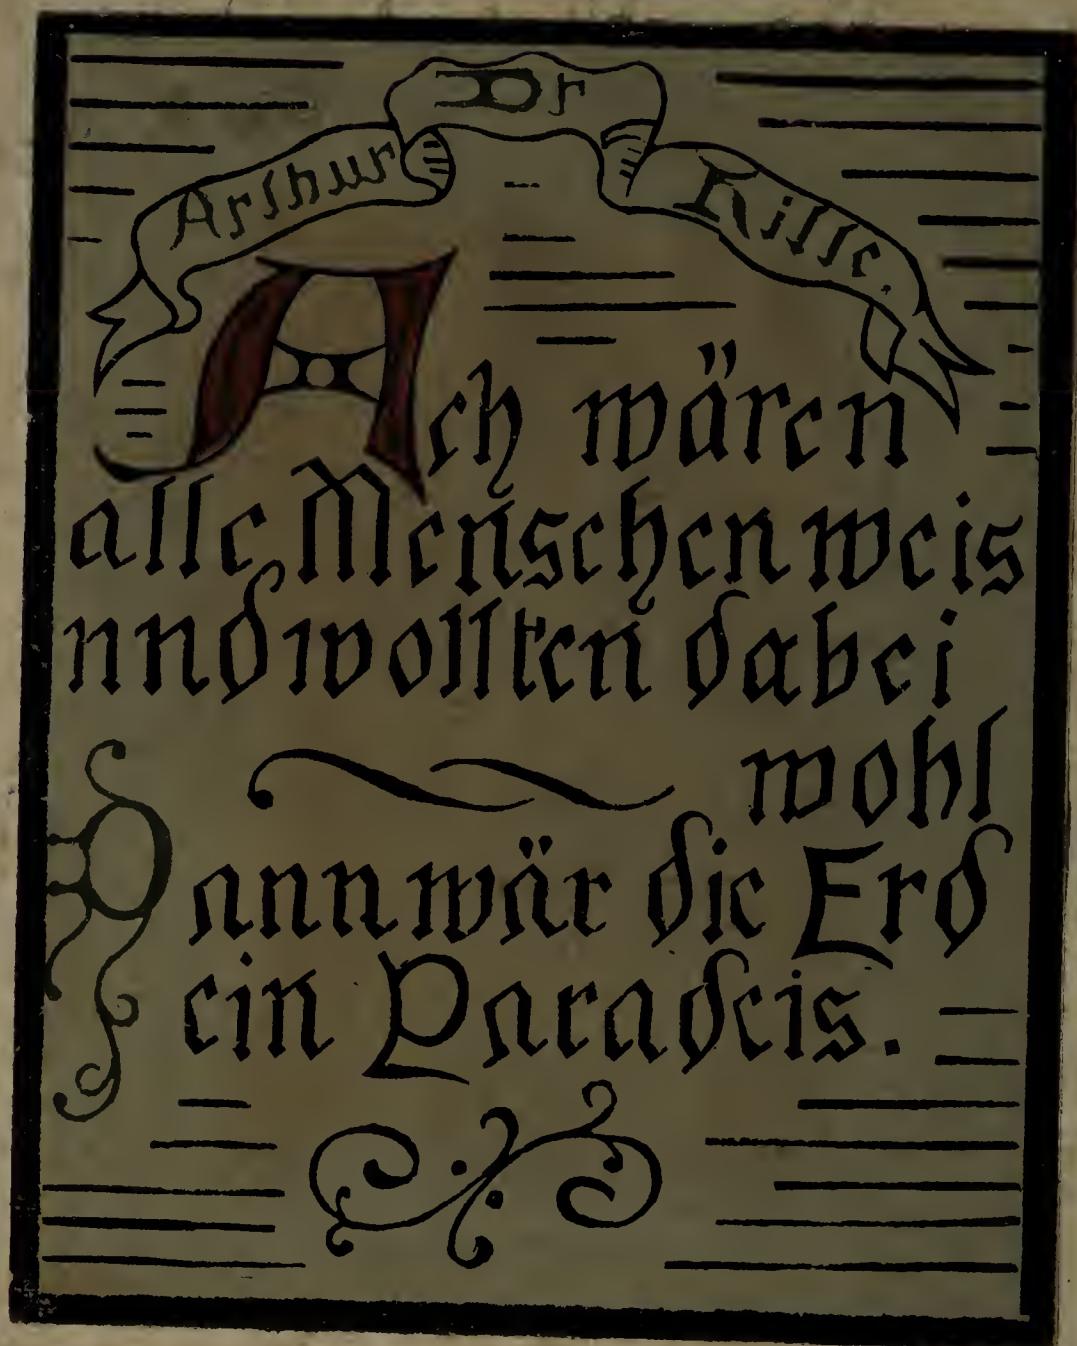 Dr Arthur
Ach wären
alle Menschen weis
und wollten dabei
wohl
Dann wär die Erd
ein Paradeis.